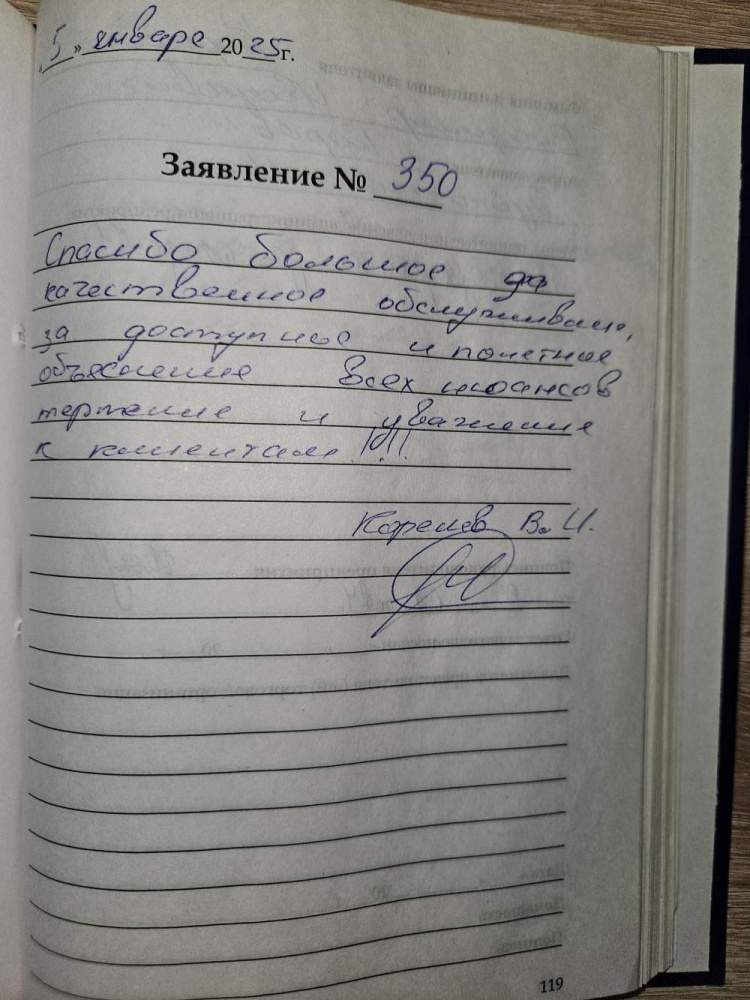 «5» январе 2025 г.
Заявление № 350
Спасибо большое за
качественное обслуживание,
за доступное и понятное
объяснение всех нюансов
терпение и уважение
к клиентам!!!!
Королев В. И.
119